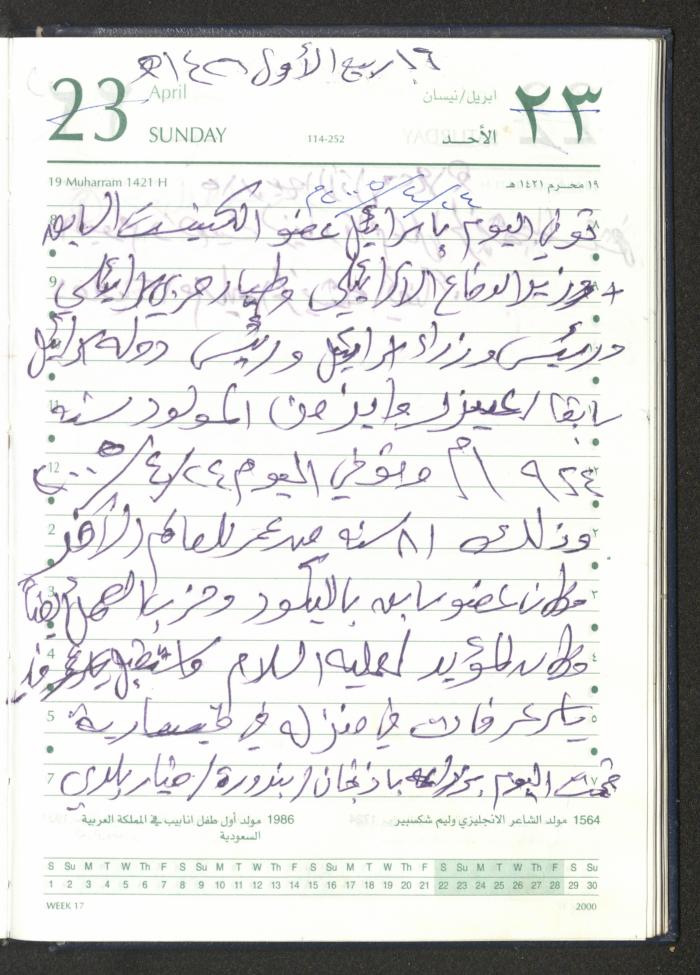 ١٦ ربيع الأول ١٤٢٦هـ
23
April
SUNDAY
114-252
ابريل/نيسان
الأحـد
٢٣
19 Muharram 1421 H
١٩ محـرم ١٤٢١ هـ
٢٤/٤/٢٠٠٥م
توفي اليوم باسرائيل عضو الكنيست السابق
+ وزير الدفاع الاسرائيلي وطيار حربي اسرائيلي
ورئيس وزراء اسرائيل ورئيس دولة اسرائيل
سابقا / عيزرا وايزمن المولود سنه
١٩٢٤م وتوفي اليوم ٢٤/٤/٢٠٠٥
وذلك ٨١ سنه من عمر للعالم الآخر
وكان عضو سابق بالليكود وحزب العمل أيضاً
وكان المؤيد لعملية السلام واستقبل
ياسر عرفات في منزله في قيسارية
قمت اليوم بزراعة باذنجان / بندورة / خيار بلدي
8
9
11
12
2
3
4
5
7
٢
٣
٤
٥
٧
1986 مولد أول طفل انابيب في المملكة العربية السعودية
1564 مولد الشاعر الانجليزي وليم شكسبير
S Su M T W Th F S Su M T W Th F S Su M T W Th F S Su M T W Th F S Su
1 2 3 4 5 6 7 8 9 10 11 12 13 14 15 16 17 18 19 20 21 22 23 24 25 26 27 28 29 30
WEEK 17
2000